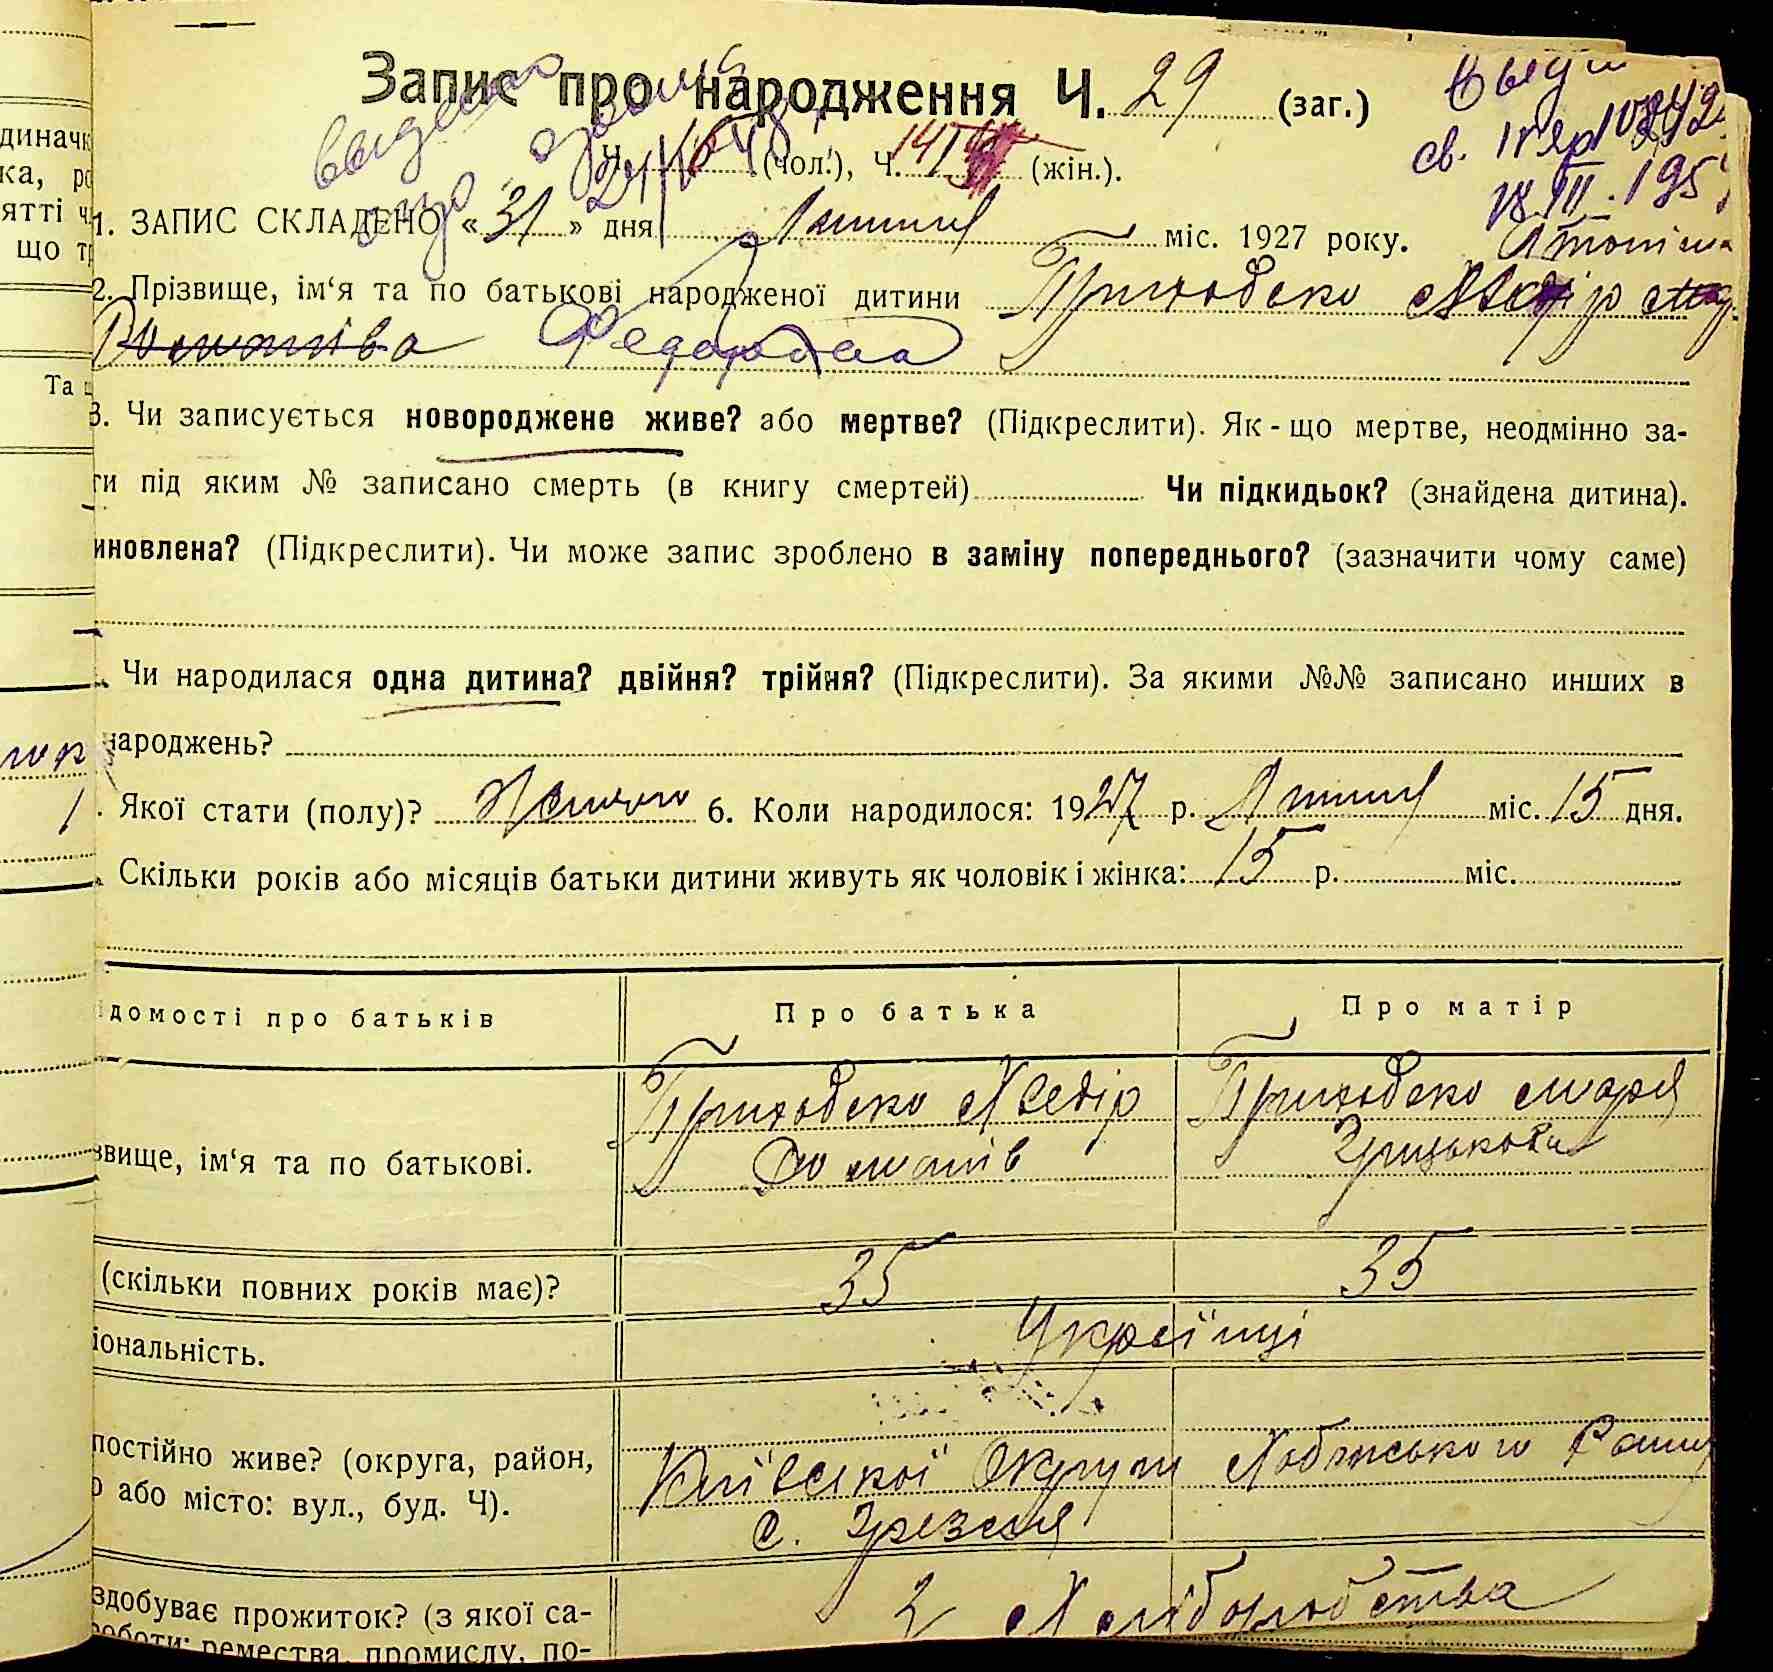 Запис про народження Ч. 29 (заг.)
Ч. (чол.), Ч. 14 (жін.).
1. ЗАПИС СКЛАДЕНО «31» дня Липня міс. 1927 року.
2. Прізвище, ім'я та по батькові народженої дитини Приходько
Федоровна
3. Чи записується новороджене живе? або мертве? (Підкреслити). Як-що мертве, неодмінно за-
ти під яким № записано смерть (в книгу смертей) Чи підкидьок? (знайдена дитина).
иновлена? (Підкреслити). Чи може запис зроблено в заміну попереднього? (зазначити чому саме)
Чи народилася одна дитина? двійня? трійня? (Підкреслити). За якими №№ записано инших в
народжень?
Якої стати (полу)? Жіночо 6. Коли народилося: 1927 р. Липня міс. 15 дня.
Скільки років або місяців батьки дитини живуть як чоловік і жінка: 15 р. міс.
ідомості про батьків Про батька Про матір
Приходько Хведір Приходько Марія
звище, ім'я та по батькові. Грицькова
(скільки повних років має)? 35 35
іональність. Українці
постійно живе? (округа, район, Київської Округи
о або місто: вул., буд. Ч). с. Грезля
здобуває прожиток? (з якої са- З Хліборобства
роботи: ремества, промислу, по-
диначк
ка, ро
ятті ч
що тр
Та